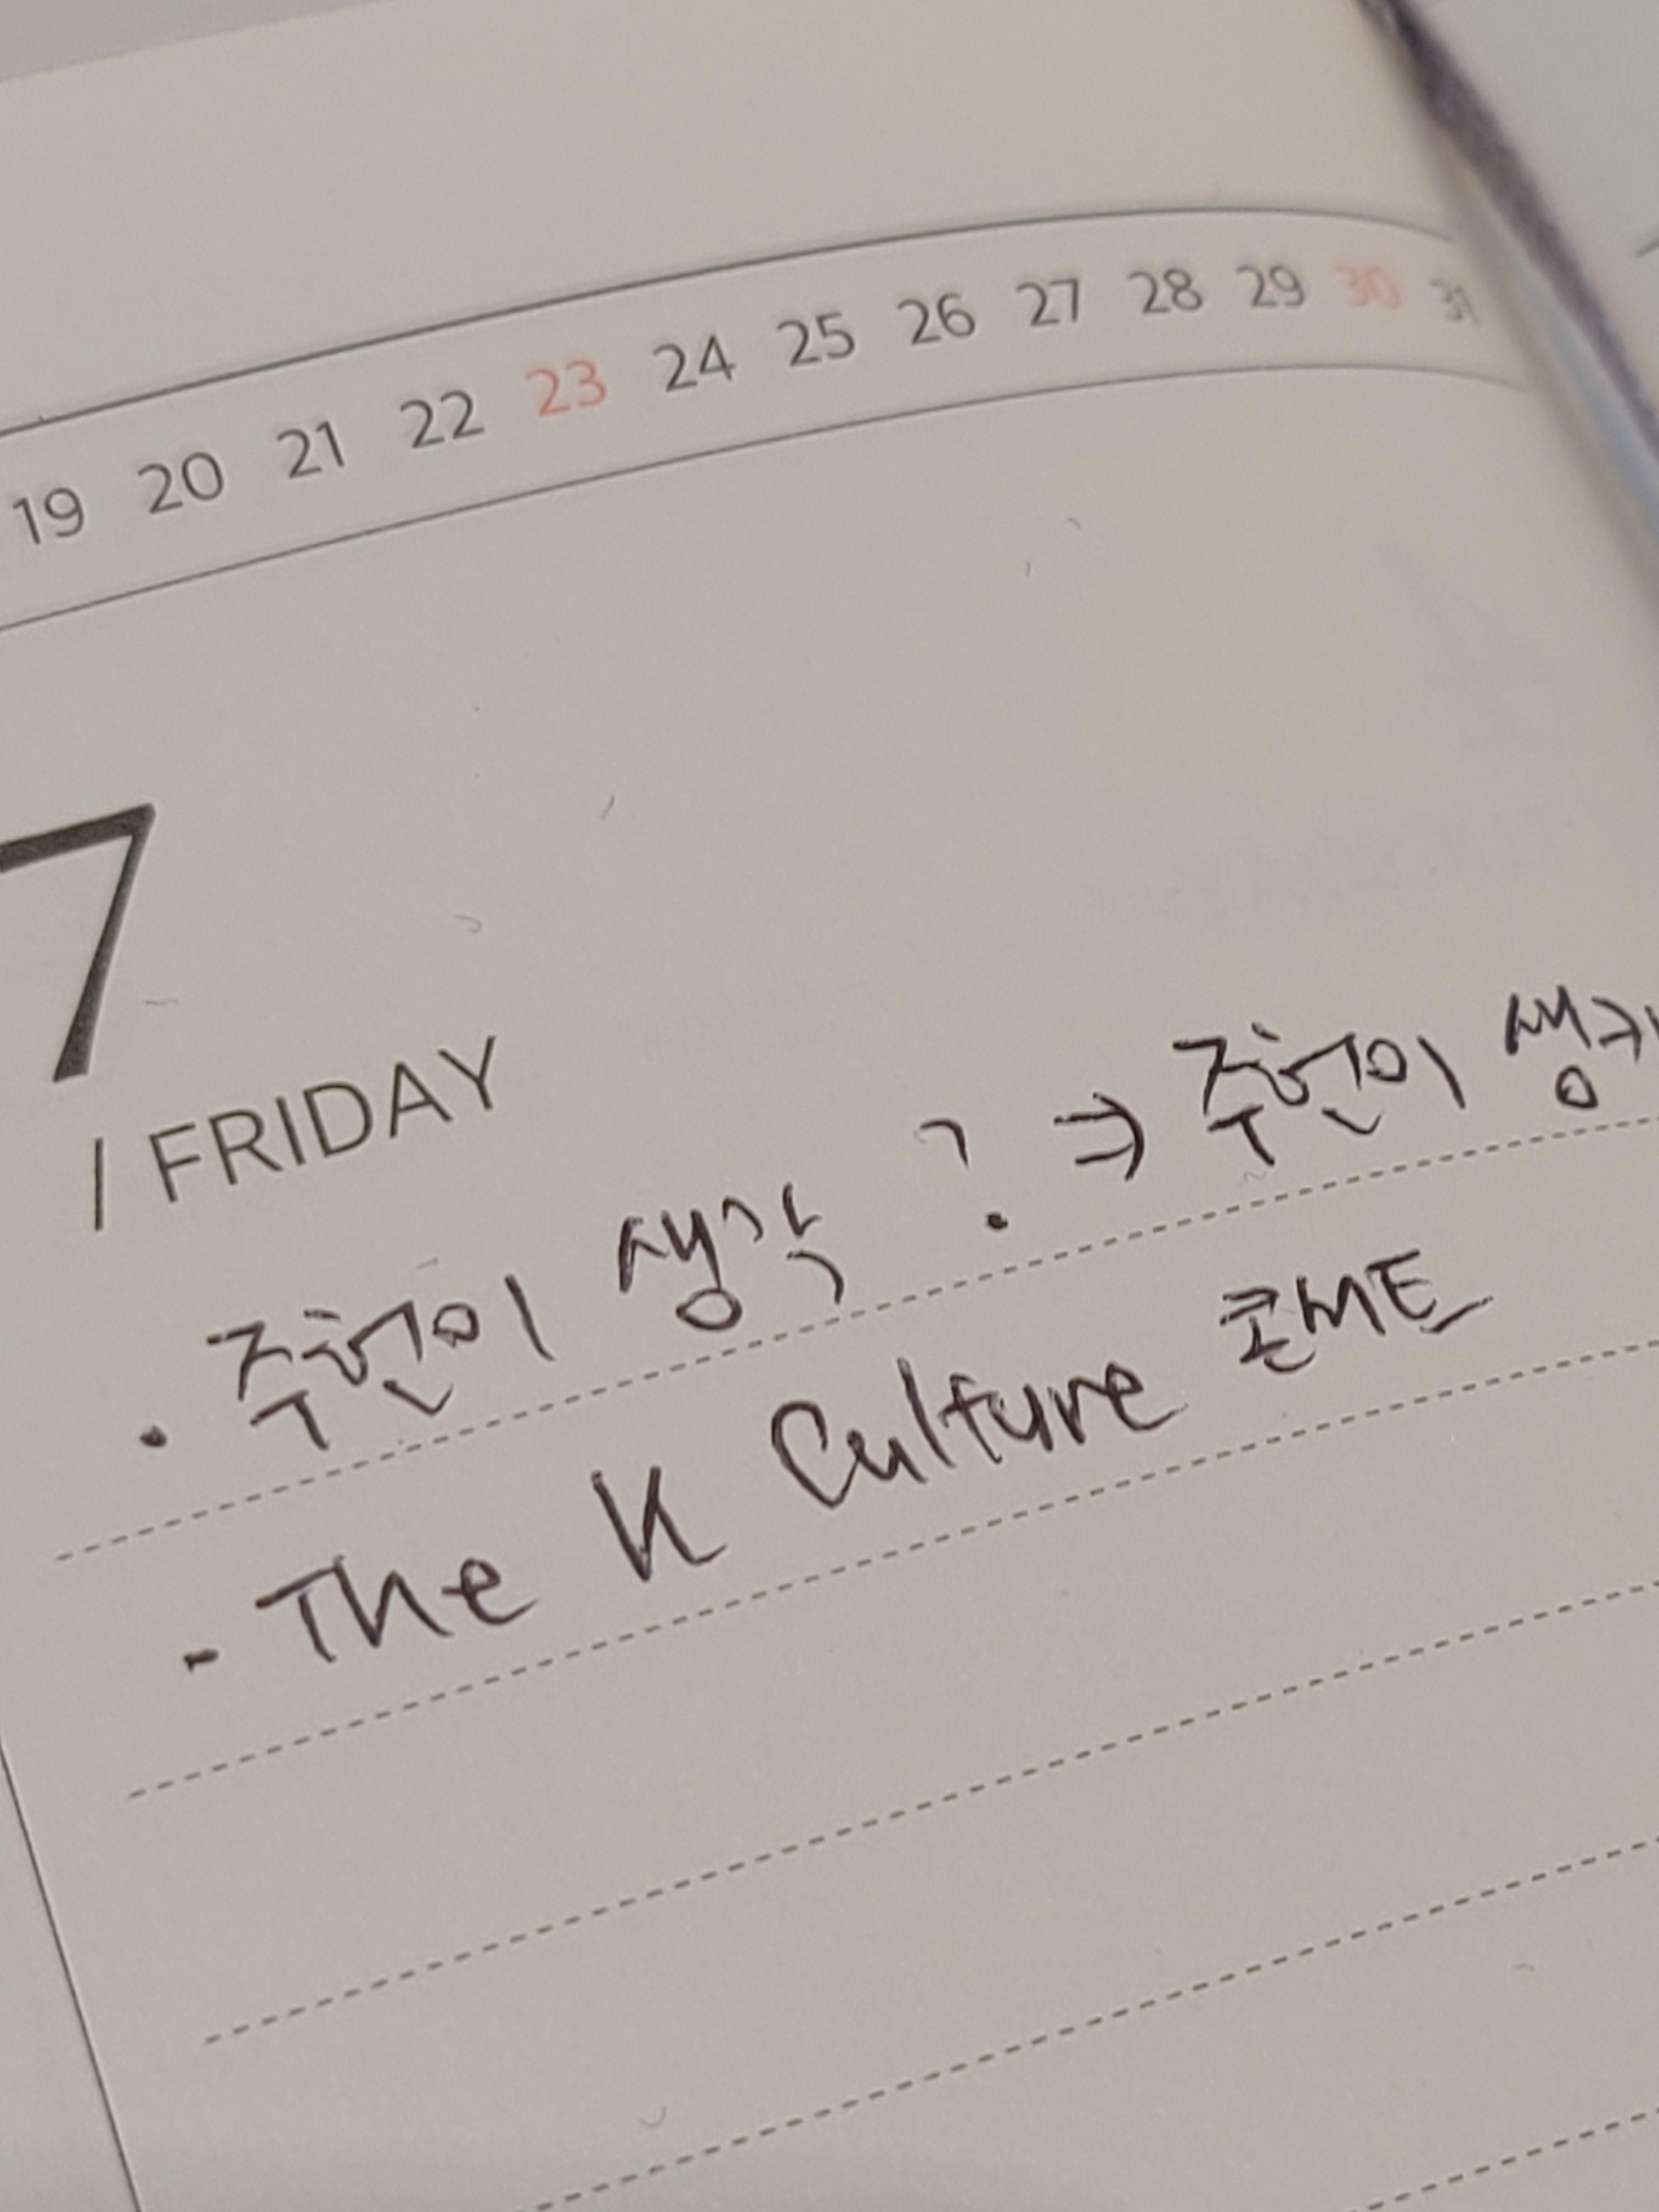 19 20 21 22 23 24 25 26 27 28 29 30 31
7
/ FRIDAY
• 주헌이 생각 ? ⇒ 주헌이 생각
- The K Culture 콘서트